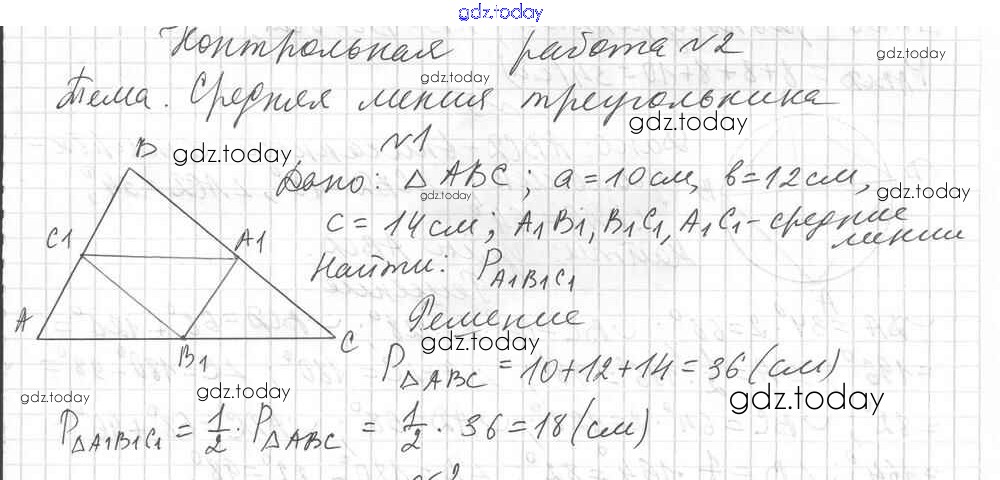 gdz.today
Контрольная работа №2
gdz.today
gdz.today
Тема. Средняя линия треугольника
gdz.today
№1
B
gdz.today
Дано: △ABC; a=10см, в=12см,
gdz.today
gdz.today
c=14см; A1B1, B1C1, A1C1-средние
линии
C1
A1
Найти: P A1B1C1
A
B1
C
Решение
gdz.today
P△ABC = 10+12+14=36(см)
gdz.today
gdz.today
gdz.today
P△A1B1C1 = 1/2 · P△ABC = 1/2 · 36=18(см)